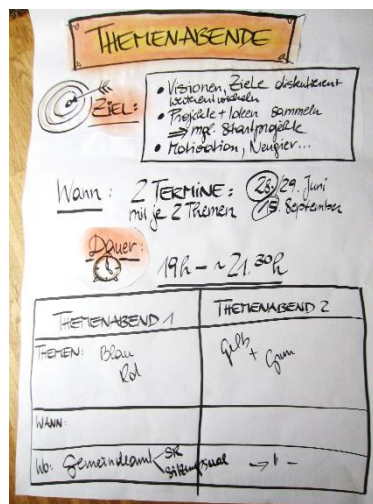 THEMENABENDE
ZIEL:
• Visionen, Ziele diskutieren
weiterentwickeln
• Projekte + Ideen sammeln
⇒ mgl. Startprojekte
• Motivation, Neugier...
Wann: 2 TERMINE: 28./29. Juni
mit je 2 Themen 15. September
Dauer:
19h – ~21.30h
THEMENABEND 1 THEMENABEND 2
THEMEN: Blau Gelb
Rot + Grün
WANN:
Wo: Gemeindeamt < SR → " –
Sitzungssaal